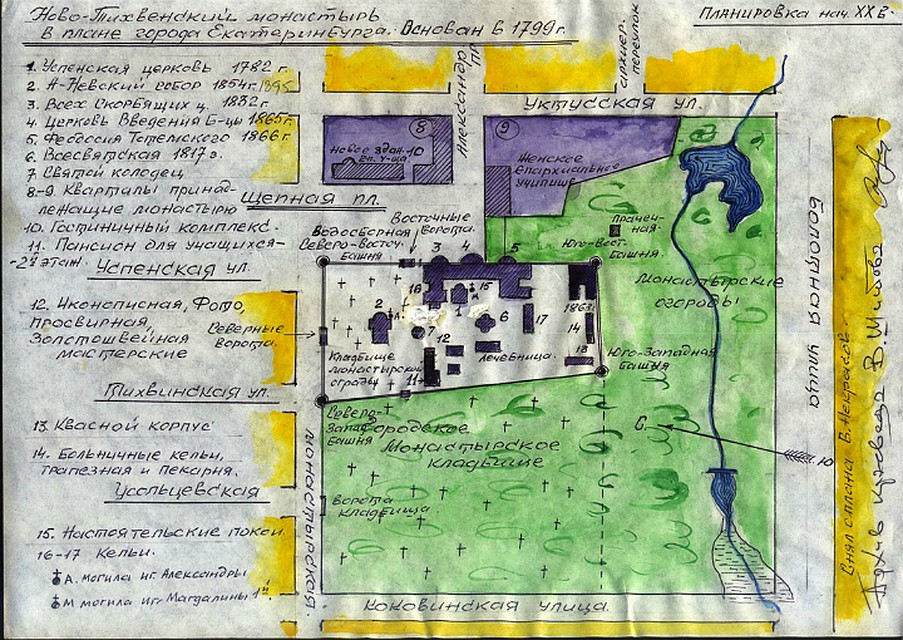 Ново-Тихвенский монастырь
в плане города Екатеринбурга. Основан в 1799г.
Планировка нач. XX в.
1. Успенская церковь 1782 г.
2. А-Невский собор 1854г. 1895
3. Всех Скорбящих ц. 1832г.
4. Церковь Введения Б-цы 1865г.
5. Феодосия Тотемского 1866г.
6. Всесвятская 1817г.
7 Святой колодец
8-9. Кварталы принад-
лежащие монастырю
10. Гостиничный комплекс.
11. Пансион для учащихся-
-2й этаж.
Успенская ул.
12. Иконописная, Фото,
просвирная,
Золотошвейная
мастерские
Тихвинская ул.
13 Квасной корпус
14. Больничные кельи,
трапезная и пекарня.
Усольцевская
15. Настоятельские покои.
16-17 Кельи.
А. могила иг. Александры
М могила иг. Магдалины 1й
Александр. пр.
архиер. переулок
Уктусская ул.
8
Новое здан. 10
еп. у-ща
9
Женское
епархиальное
училище
Щепная пл.
Водосборная
Восточные
ворота.
Северо-Восточ.
башня
Юго-Вост.
башня.
Прачеч-
ная.
Монастырские
огороды
Болотная улица
3
4
5
16
15
М
2
А
1
6
17
1863г.
14
7
12
13
лечебница.
11
Северные
ворота.
Кладбище
монастырской
ограды
Юго-Западная
башня
Северо-
Запад.
башня
Городское
Монастырское
кладбище
С.
Ю
Ворота
кладбища.
Монастырская.
Коковинская улица.
Снял с плана В. Некрасов.
Архив краеведа В. Шитова